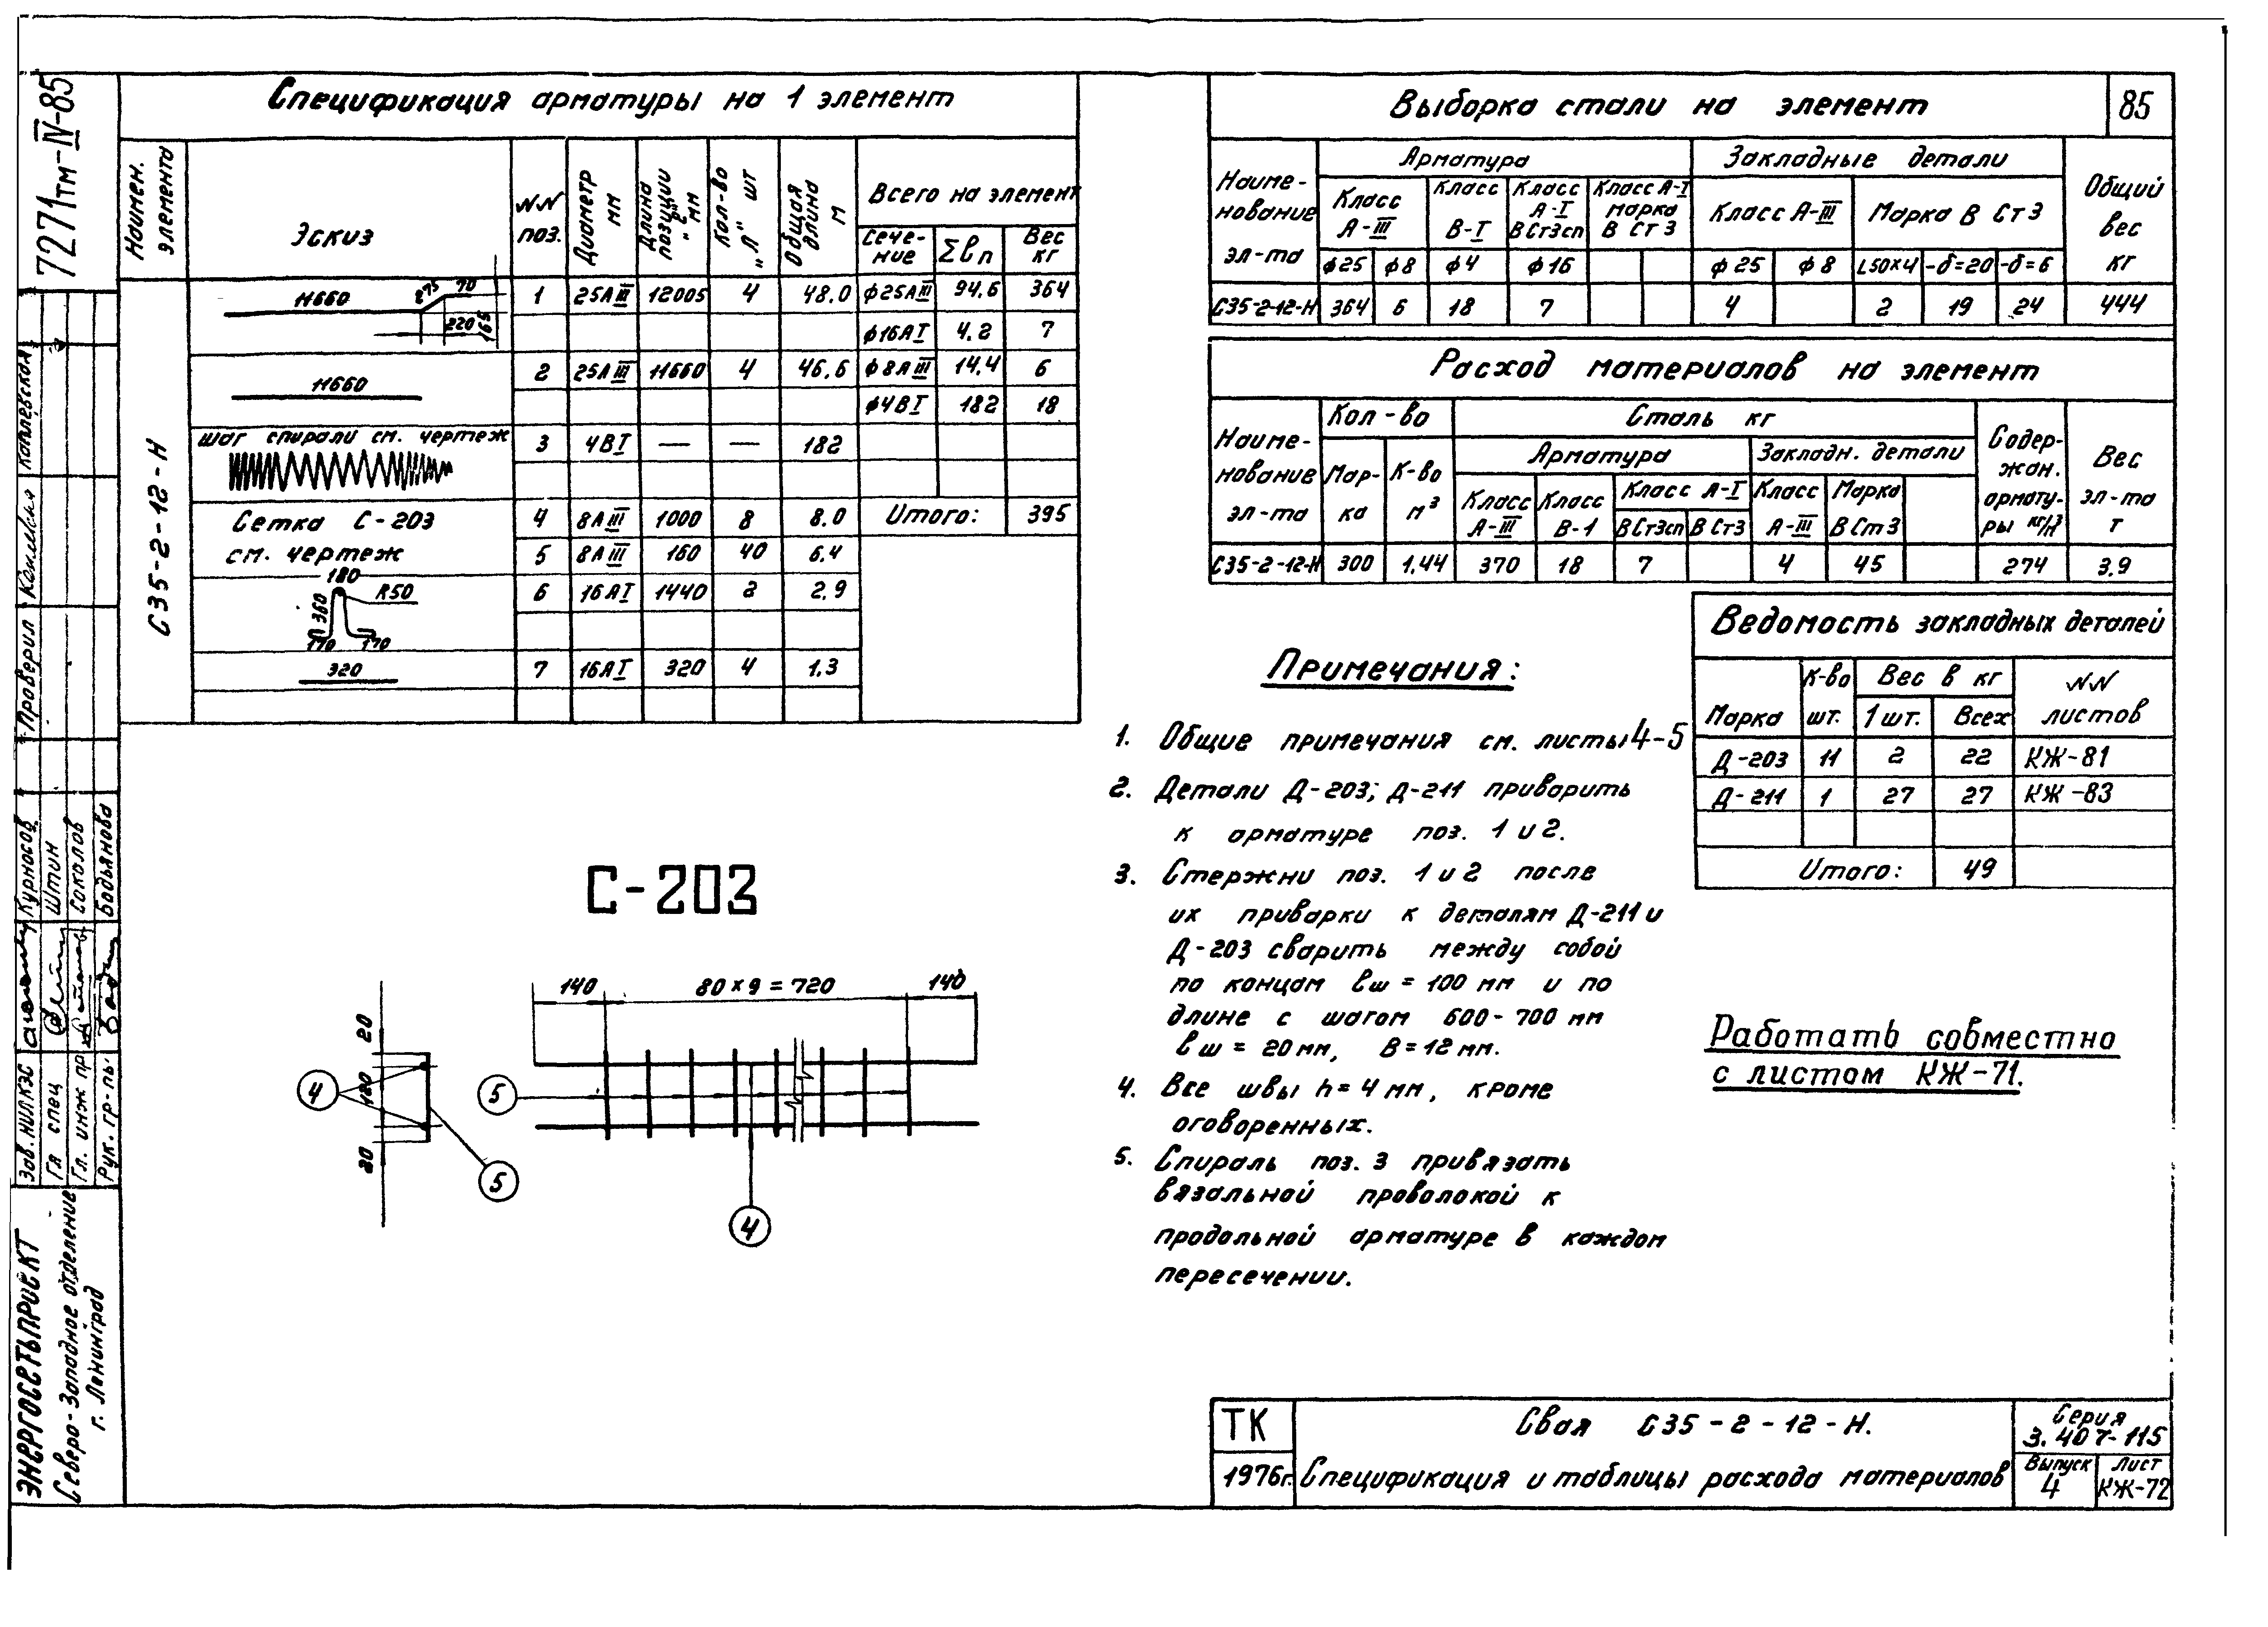 7271тм-IV-85
Спецификация арматуры на 1 элемент
Наимен. элемента
Эскиз
NN поз.
Диаметр мм
Длина позиции "ℓ" мм
Кол-во "Л" шт
Общая длина м
Всего на элемент
Сечение
Σℓп
Вес кг
С35-2-12-Н
11660 275 70 220 165
1 25АIII 12005 4 48.0 ф25АIII 94.6 364
ф16АI 4.2 7
11660
2 25АIII 11660 4 46.6 ф8АIII 14.4 6
ф4ВI 182 18
шаг спирали см. чертеж
3 4ВI — — 182
Сетка С-203
см. чертеж
4 8АIII 1000 8 8.0 Итого: 395
5 8АIII 160 40 6.4
180 R50 360 170 170
6 16АI 1440 2 2.9
320
7 16АI 320 4 1.3
Выборка стали на элемент
85
Наименование эл-та
Арматура
Закладные детали
Общий вес кг
Класс А-III
Класс В-I
Класс А-I ВСт3сп
Класс А-I марка В Ст3
Класс А-III
Марка В Ст3
ф25 ф8 ф4 ф16 ф25 ф8 L50×4 -δ=20 -δ=6
С35-2-12-Н 364 6 18 7 4 2 19 24 444
Расход материалов на элемент
Наименование эл-та
Кол-во
Сталь кг
Содержан. арматуры кг/м³
Вес эл-та т
Марка
К-во м³
Арматура
Закладн. детали
Класс А-III
Класс В-1
Класс А-I
ВСт3сп
ВСт3
Класс А-III
Марка ВСт3
С35-2-12-Н 300 1.44 370 18 7 4 45 274 3.9
Ведомость закладных деталей
Марка
К-во шт.
Вес в кг
1 шт. Всех
NN листов
Д-203 11 2 22 КЖ-81
Д-211 1 27 27 КЖ-83
Итого: 49
Примечания:
1. Общие примечания см. листы 4-5
2. Детали Д-203; Д-211 приварить
к арматуре поз. 1 и 2.
3. Стержни поз. 1 и 2 после
их приварки к деталям Д-211 и
Д-203 сварить между собой
по концам ℓш = 100 мм и по
длине с шагом 600-700 мм
ℓш = 20мм, В=12мм.
4. Все швы h=4мм, кроме
оговоренных.
5. Спираль поз. 3 привязать
вязальной проволокой к
продольной арматуре в каждом
пересечении.
Работать совместно
с листом КЖ-71.
С-203
140 80×9=720 140
20 120 20
4 5 5 4
ТК
1976г.
Свая С35-2-12-Н.
Спецификация и таблицы расхода материалов
Серия
3.407-115
Выпуск
4
Лист
КЖ-72
Проверил
Зав. НИЛКЭС Курносов
Гл спец Штин
Гл. инж пр Соколов
Рук. гр-пы
ЭНЕРГОСЕТЬПРОЕКТ
Северо-Западное отделение
г. Ленинград